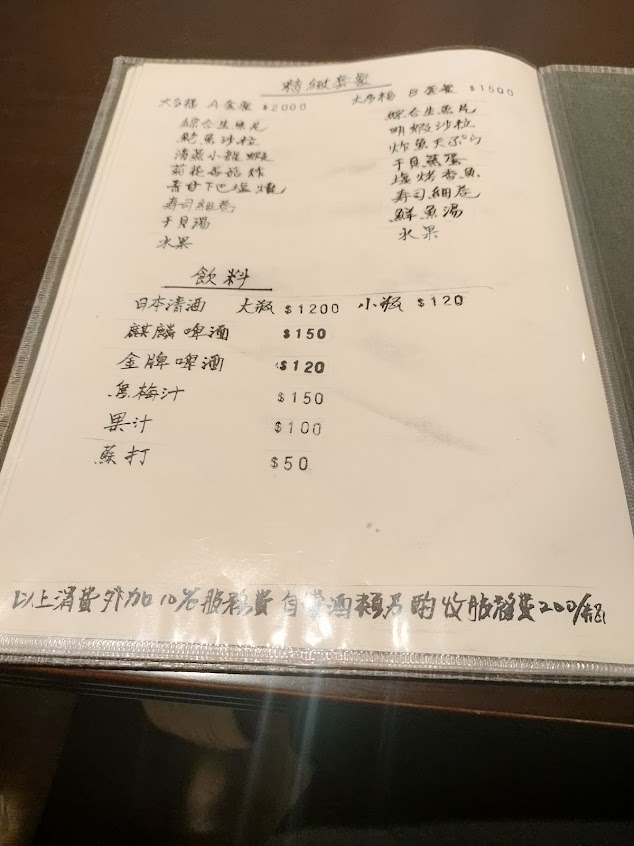 精緻套餐
大多福 A 套餐 $2000
綜合生魚片
鮑魚沙拉
清蒸小龍蝦
菊花香菇炸
青甘下巴塩燒
寿司細巻
干貝湯
水果
大多福 B 套餐 $1500
綜合生魚片
明蝦沙拉
炸魚天ぷら
干貝蒸蛋
塩烤香魚
寿司細巻
鮮魚湯
水果
飲料
日本清酒 大瓶 $1200 小瓶 $120
麒麟啤酒 $150
金牌啤酒 $120
烏梅汁 $150
果汁 $100
蘇打 $50
以上消費外加10%服務費 自帶酒類另酌收服務費200/瓶